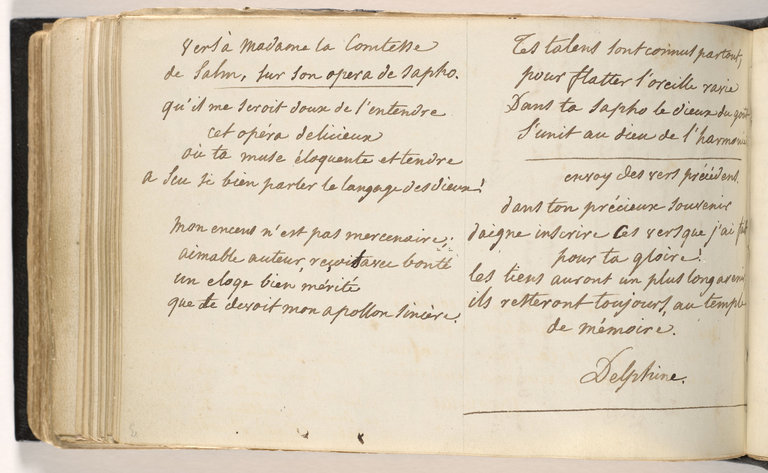 Vers à Madame la Comtesse
de Salm, sur son opera de Sapho.
qu'il me seroit doux de l'entendre
cet opera delicieux
où ta muse éloquente et tendre
a sçu si bien parler le langage des dieux!
mon encens n'est pas mercenaire;
aimable auteur, reçoit avec bonté
un eloge bien mérité
que te devoit mon apollon sincère.
Tes talens sont connus partout;
pour flatter l'oreille ravie
Dans ta Sapho le dieu du goût
s'unit au dieu de l'harmonie
envoy des vers précédens.
dans ton précieux souvenir
daigne inscrire ces vers que j'ai fait
pour ta gloire:
les tiens auront un plus long avenir
ils resteront toujours, au temple
de mémoire.
Delphine.